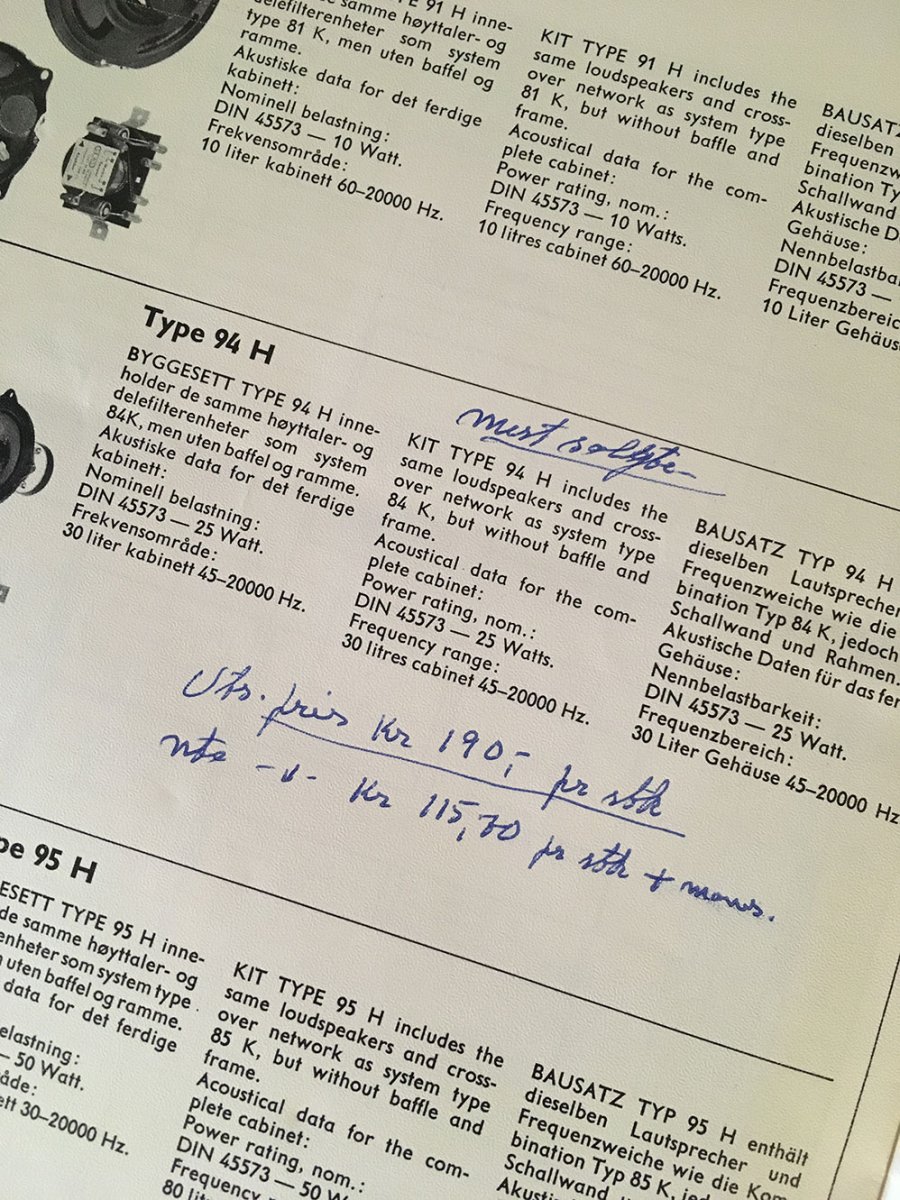 TYPE 91 H inne-
samme høyttaler- og
delefilterenheter som system
type 81 K, men uten baffel og
ramme.
Akustiske data for det ferdige
kabinett:
Nominell belastning:
DIN 45573 — 10 Watt.
Frekvensområde:
10 liter kabinett 60–20000 Hz.
KIT TYPE 91 H includes the
same loudspeakers and cross-
over network as system type
81 K, but without baffle and
frame.
Acoustical data for the com-
plete cabinet:
Power rating, nom.:
DIN 45573 — 10 Watts.
Frequency range:
10 litres cabinet 60–20000 Hz.
BAUSATZ
dieselben
Frequenzw
bination Ty
Schallwand
Akustische D
Gehäuse:
Nennbelastba
DIN 45573 —
Frequenzbereic
10 Liter Gehäus
Type 94 H
BYGGESETT TYPE 94 H inne-
holder de samme høyttaler- og
delefilterenheter som system
84K, men uten baffel og ramme.
Akustiske data for det ferdige
kabinett:
Nominell belastning:
DIN 45573 — 25 Watt.
Frekvensområde:
30 liter kabinett 45–20000 Hz.
mest solgte
KIT TYPE 94 H includes the
same loudspeakers and cross-
over network as system type
84 K, but without baffle and
frame.
Acoustical data for the com-
plete cabinet:
Power rating, nom.:
DIN 45573 — 25 Watts.
Frequency range:
30 litres cabinet 45–20000 Hz.
BAUSATZ TYP 94 H
dieselben Lautsprecher
Frequenzweiche wie die
bination Typ 84 K, jedoch
Schallwand und Rahmen.
Akustische Daten für das fer
Gehäuse:
Nennbelastbarkeit:
DIN 45573 — 25 Watt.
Frequenzbereich:
30 Liter Gehäuse 45–20000 Hz
Uts. pris Kr 190,- pr stk
nto -"- Kr 115,70 pr stk + moms.
pe 95 H
ESETT TYPE 95 H inne-
de samme høyttaler- og
erenheter som system type
uten baffel og ramme.
data for det ferdige
elastning:
— 50 Watt.
åde:
ett 30–20000 Hz.
KIT TYPE 95 H includes the
same loudspeakers and cross-
over network as system type
85 K, but without baffle and
frame.
Acoustical data for the com-
plete cabinet:
Power rating, nom.:
DIN 45573 — 50 Watts.
Frequency
80 lit
BAUSATZ TYP 95 H enthält
dieselben Lautsprecher und
Frequenzweiche wie die Kom
bination Typ 85 K, jed
Schallwand
Akust